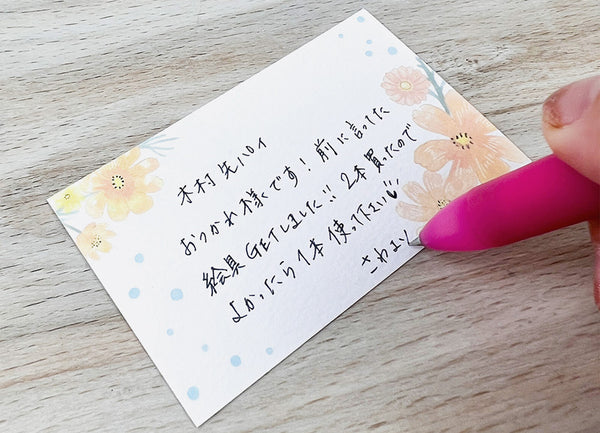 木村先パイ
おつかれ様です！前に言ってた
絵具GETしました!! 2本買ったので
よかったら1本使って下さい
さわまり